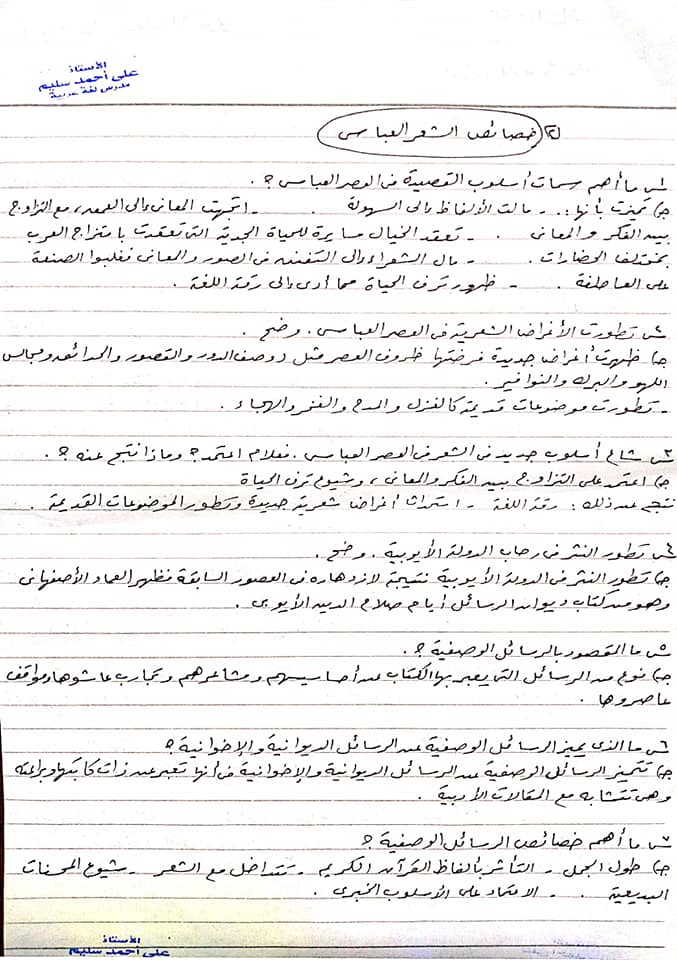 الأستاذ
على أحمد سليم
مدرس لغة عربية
٢) خصائص الشعر العباسى
س١ ما أهم سمات أسلوب القصيدة فى العصر العباسى ؟
جـ) تميزت بأنها : - مالت الألفاظ إلى السهولة . - اتجهت المعانى إلى العمق ، مع التزاوج
بين الفكر والمعانى . - تعقد الخيال مسايرة للحياة الجديدة التى تعقدت بامتزاج العرب
بمختلف الحضارات . - مال الشعراء إلى التفنن فى الصور والمعانى فغلبوا الصنعة
على العاطفة . - ظهور ترف الحياة مما أدى إلى رقة اللغة .
س٢ تطورت الأغراض الشعرية فى العصر العباسى . وضح .
جـ) ظهرت أغراض جديدة فرضتها ظروف العصر مثل : وصف الدور والقصور والحدائق ومجالس
اللهو والبرك والنوافير .
- تطورت موضوعات قديمة كالغزل والمدح والفخر والهجاء .
س٣ شاع أسلوب جديد فى الشعر فى العصر العباسى . فعلام اعتمد ؟ وماذا نتج عنه ؟
جـ) اعتمد على التزاوج بين الفكر والمعانى ، وشيوع ترف الحياة
نتج عن ذلك : رقة اللغة - استحداث أغراض شعرية جديدة وتطور الموضوعات القديمة .
س٤ تطور النثر فى رحاب الدولة الأيوبية . وضح .
جـ) تطور النثر فى الدولة الأيوبية نتيجة لازدهاره فى العصور السابقة فظهر العماد الأصفهانى
وهو من كتاب ديوان الرسائل أيام صلاح الدين الأيوبى .
س٥ ما المقصود بالرسائل الوصفية ؟
جـ) نوع من الرسائل التى يعبر بها الكتاب عن أحاسيسهم ومشاعرهم وتجارب عاشوها ومواقف
عاصروها .
س٦ ما الذى يميز الرسائل الوصفية عن الرسائل الديوانية والإخوانية ؟
جـ) تتميز الرسائل الوصفية عن الرسائل الديوانية والإخوانية فى أنها تعبر عن ذات كاتبها وبراعته
وهى تتشابه مع المقالات الأدبية .
س٧ ما أهم خصائص الرسائل الوصفية ؟
جـ) طول الجمل - التأثر بألفاظ القرآن الكريم - تتداخل مع الشعر - شيوع المحسنات
البديعية . - الاعتماد على الأسلوب الخبرى .
الأستاذ
على أحمد سليم